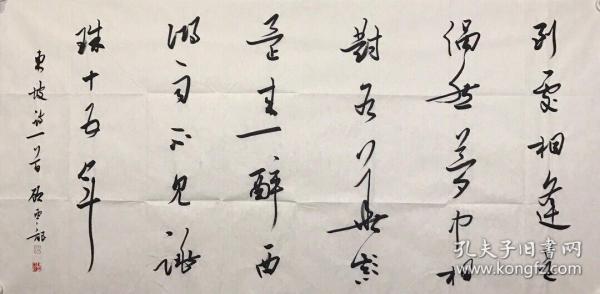 到處相逢是
偶然夢中相
對各華顛
還來一醉西
湖雨不見跳
珠十五年
東坡詩一首
孔夫子旧书网
www.kongfz.com